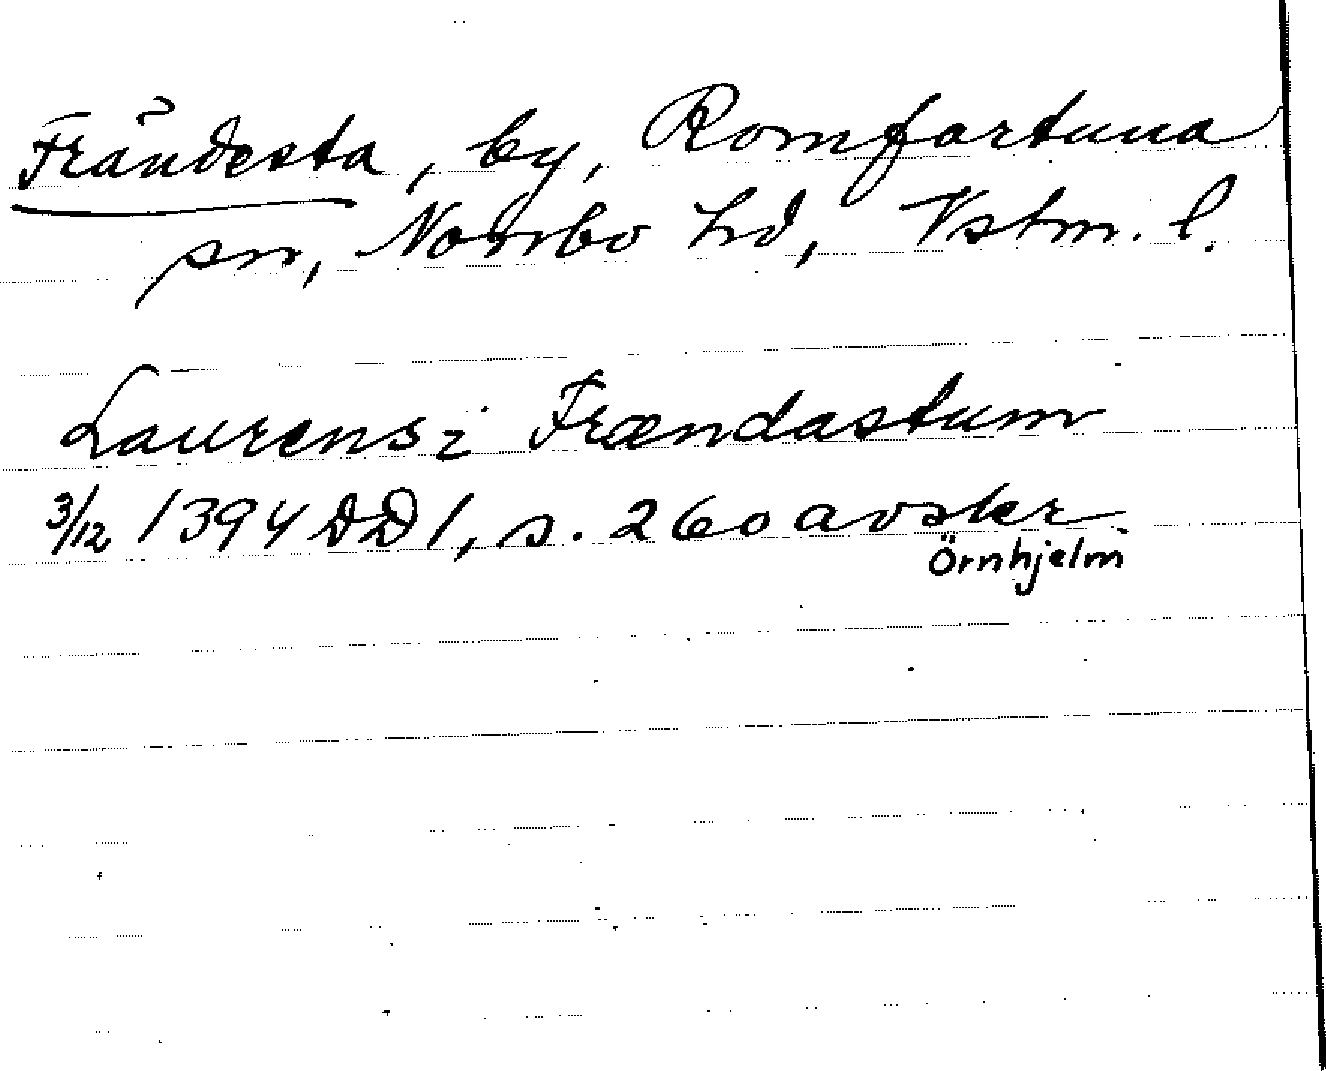 Frändesta, by, Romfartuna
sn, Norrbo hd, Vstm. l.
Laurens i Frændastum
3/12 1394 DD 1, s. 260 avskr.
Örnhjelm